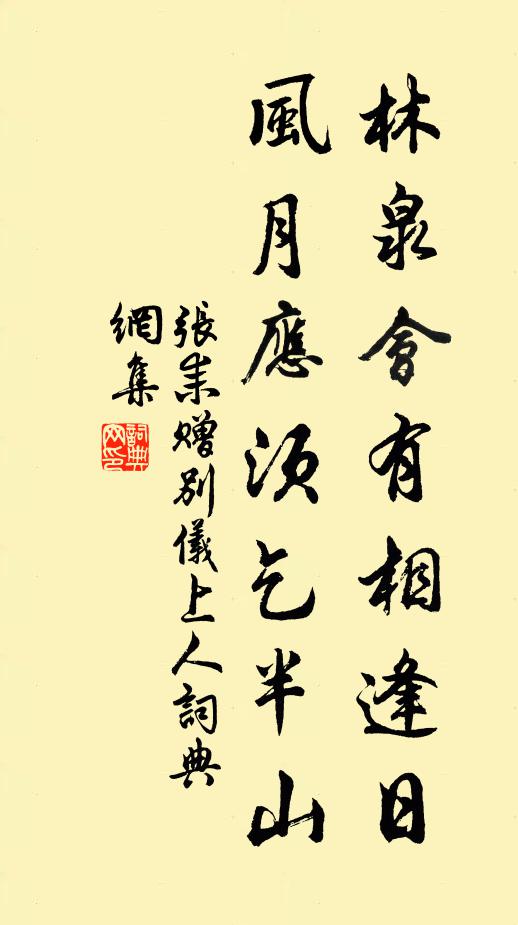 林泉會有相逢日
風月應須乞半山
張耒贈別儀上人詞典
網集
詞典
网印